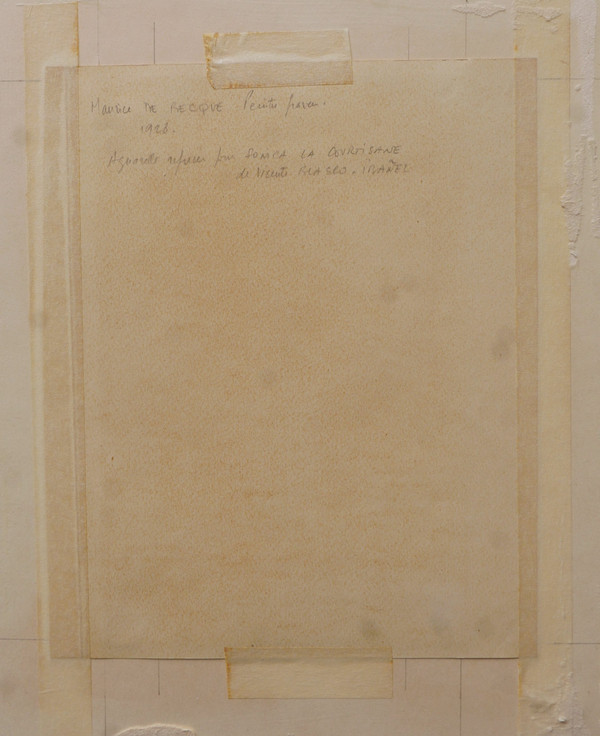 Maurice DE BECQUE Peintre graveur.
1926.
Aquarelle pour SONICA LA COURTISANE
de Vicente BLASCO. IBAÑEZ